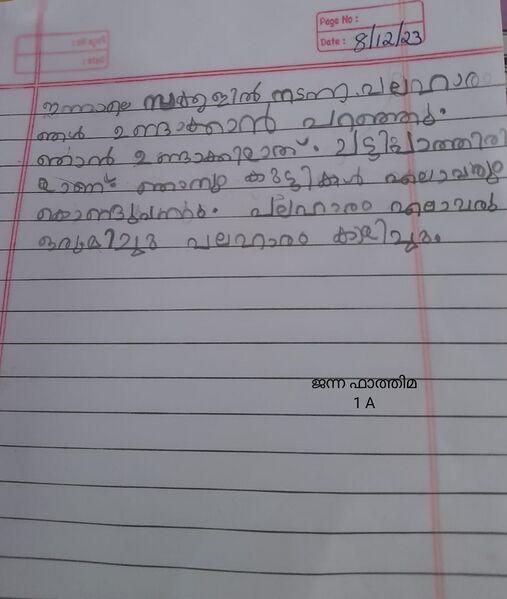 Page No :
Date : 8/12/23
ഇന്നാലെ സ്കൂളിൽ നടന്ന പലഹാര
ങൾ ഉണ്ടാക്കാൻ പറഞ്ഞു.
ഞാൻ ഉണ്ടാക്കിയത്.
യാണ് ഞാനും കുട്ടികൾ എലാവരും
കൊണ്ടുവന്നു. പലഹാരം എലാവരു
ഒരുമിച്ചു പലഹാരം കഴിച്ചു.
ജന്ന ഫാത്തിമ
1 A